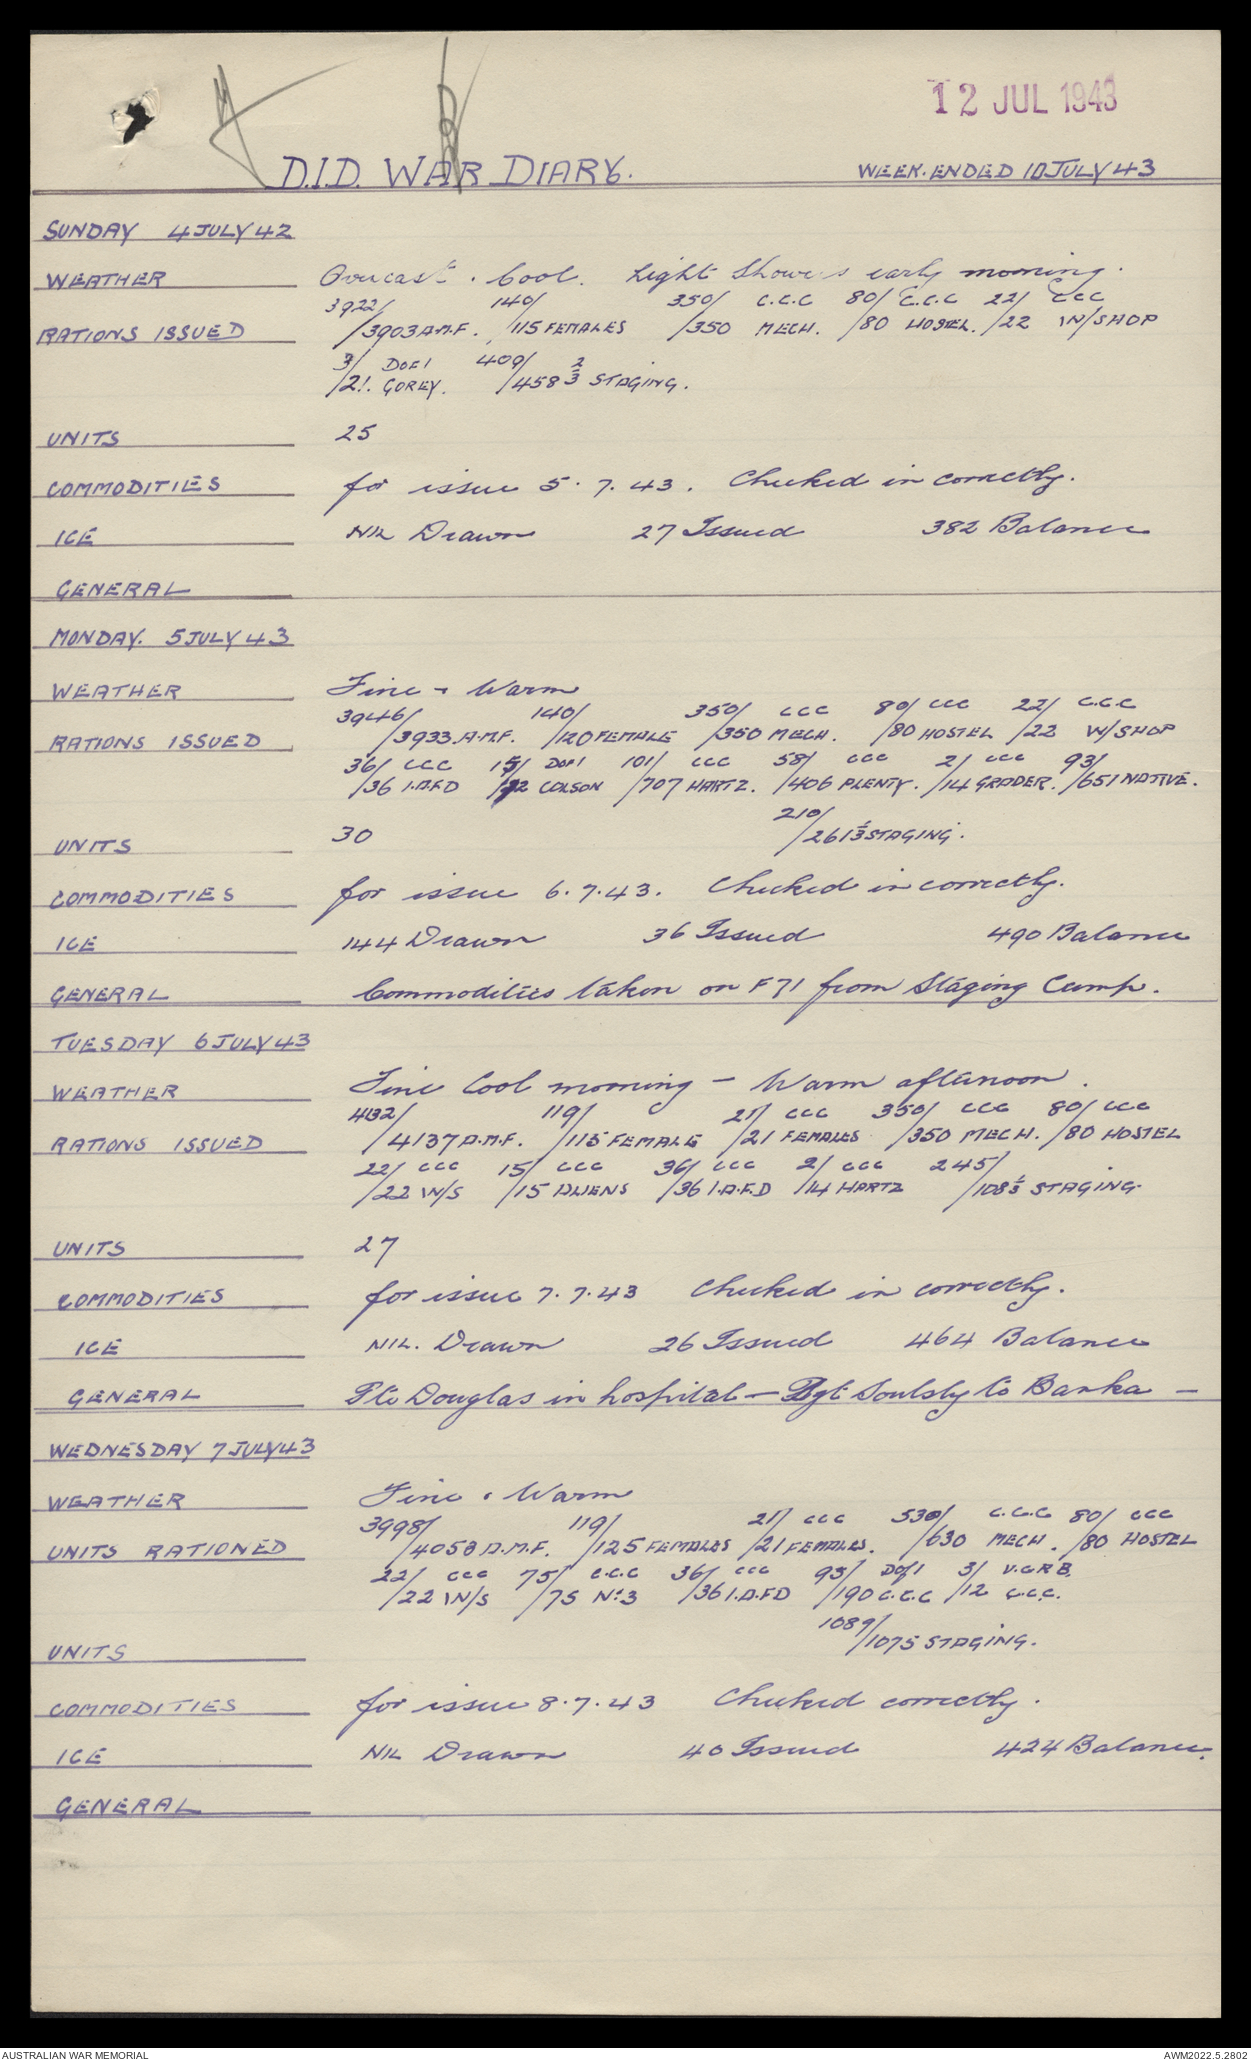 12 JUL 1943
D.I.D. WAR DIARY. WEEK. ENDED 10 JULY 43
SUNDAY 4 JULY 42
WEATHER Overcast. Cool. Light Showers early morning.
3922/ 140/ 350/ C.C.C 80/ C.C.C 22/ CCC
RATIONS ISSUED /3903 A.M.F. /115 FEMALES /350 MECH. /80 HOSTEL. /22 W/SHOP
3/ DOFI 409/ 2
/21. GOREY. /458 3 STAGING.
UNITS 25
COMMODITIES for issue 5.7.43. Checked in correctly.
ICE NIL Drawn 27 Issued 382 Balance
GENERAL
MONDAY. 5 JULY 43
WEATHER Fine & Warm
3946/ 140/ 350/ CCC 80/ CCC 22/ C.C.C
RATIONS ISSUED /3933 A.M.F. /120 FEMALE /350 MECH. /80 HOSTEL /22 W/SHOP
36/ CCC 15/ DOFI 101/ CCC 58/ CCC 2/ CCC 93/
/36 I.A.F.D / COLSON /707 HARTZ. /406 PLENTY. /14 GRADER. /651 NATIVE.
210/
UNITS 30 /261 1/3 STAGING.
COMMODITIES for issue 6.7.43. Checked in correctly.
ICE 144 Drawn 36 Issued 490 Balance
GENERAL Commodities taken on F71 from Staging Camp.
TUESDAY 6 JULY 43
WEATHER Fine Cool morning - Warm afternoon.
4132/ 119/ 21/ CCC 350/ CCC 80/ CCC
RATIONS ISSUED /4137 A.M.F. /115 FEMALE /21 FEMALES /350 MECH. /80 HOSTEL
22/ CCC 15/ CCC 36/ CCC 2/ CCC 245/
/22 W/S /15 ALIENS /36 I.A.F.D /14 HARTZ /108 1/3 STAGING.
UNITS 27
COMMODITIES for issue 7.7.43 Checked in correctly.
ICE NIL. Drawn 26 Issued 464 Balance
GENERAL Pte Douglas in hospital - Sgt Soulsby to Banka -
WEDNESDAY 7 JULY 43
WEATHER Fine & Warm
3998/ 119/ 21/ CCC 530/ C.C.C 80/ CCC
UNITS RATIONED /4058 A.M.F. /125 FEMALES /21 FEMALES. /630 MECH. /80 HOSTEL
22/ CCC 75/ C.C.C 36/ CCC 95/ DOFI 3/ V.G.R.B.
/22 W/S /75 No.3 /36 I.A.F.D /190 C.C.C /12 C.C.C.
1089/
/1075 STAGING.
UNITS
COMMODITIES for issue 8.7.43 Checked correctly.
ICE NIL Drawn 40 Issued 424 Balance.
GENERAL
AUSTRALIAN WAR MEMORIAL AWM2022.5.2802